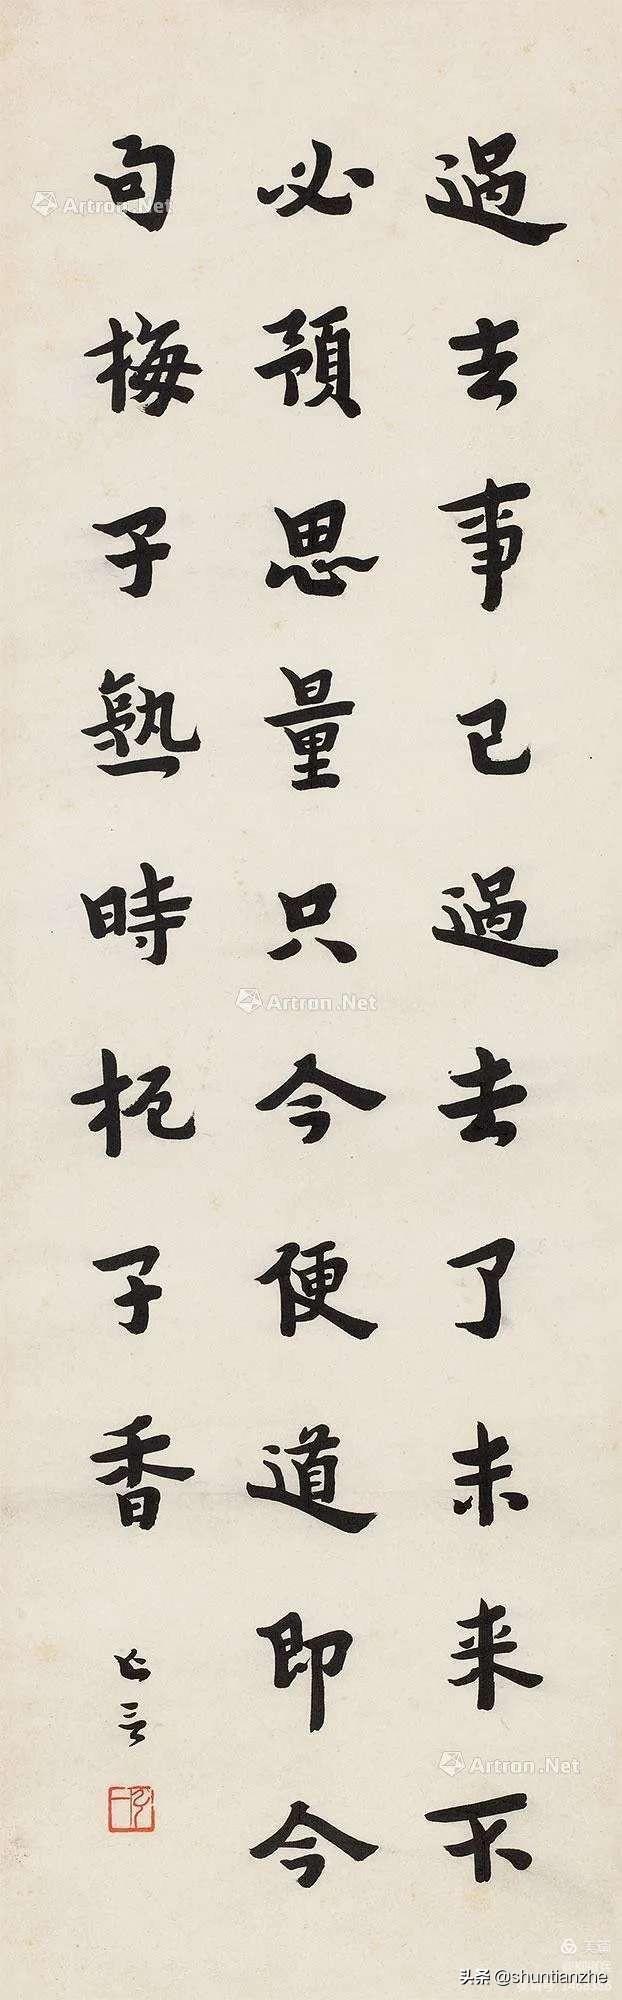 過去事已過去了未来不
必預思量只今便道即今
句梅子熟時栀子香
Artron.Net
Artron.Net
Artron.Net
头条 @shuntianzhe